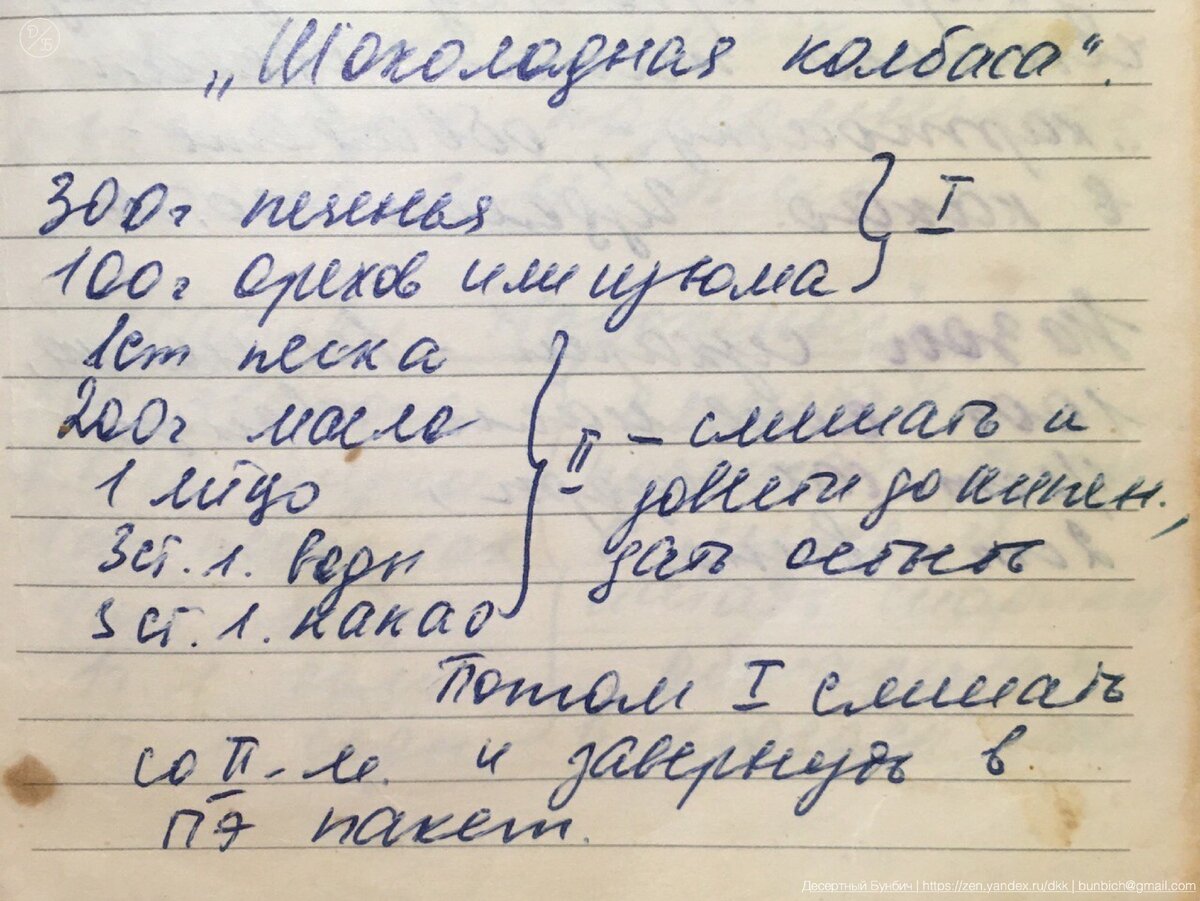 „Шоколадная колбаса".
300г печенья
100г орехов или изюма } I
1ст песка
200г масло
1 яйцо
3ст. л. воды
3 ст. л. какао
} II – смешать и
довести до кипен.,
дать остыть
Потом I смешать
со II-м. и завернуть в
ПЭ пакет.
Десертный Бунбич | https://zen.yandex.ru/dkk | bunbich@gmail.com